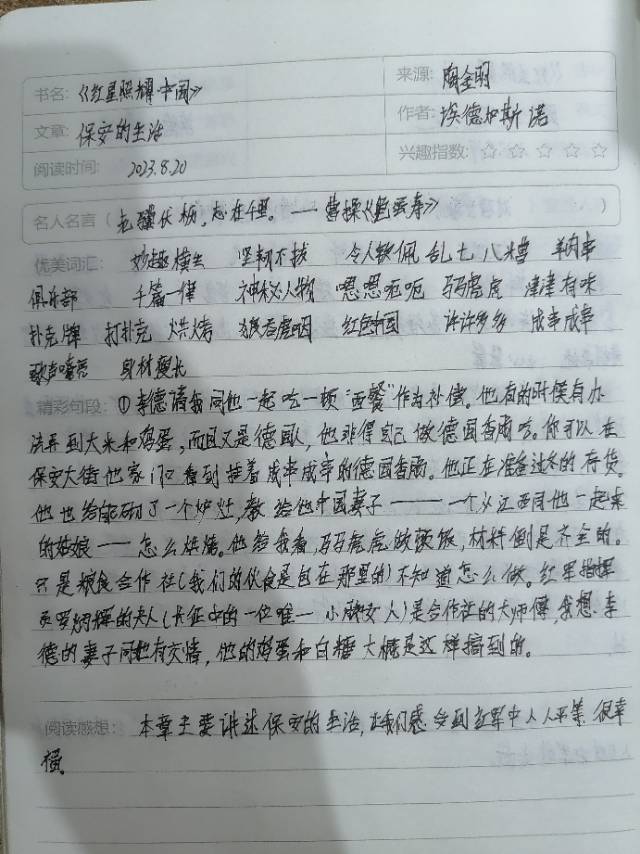 书名: 《红星照耀中国》
来源:
文章: 保安的生活
作者: 埃德加斯诺
阅读时间: 2023.8.20
兴趣指数: ☆ ☆ ☆ ☆ ☆
名人名言 ( 老骥伏枥, 志在千里。—— 曹操《龟虽寿》 )
优美词汇: 妙趣横生 坚韧不拔 令人钦佩 乱七八糟 羊肉串
俱乐部 千篇一律 神秘人物 嗯嗯呃呃 马马虎虎 津津有味
扑克牌 打扑克 烘烤 狼吞虎咽 红色中国 许许多多 成串成串
歌声嘹亮 身材瘦长
精彩句段: ① 李德请我同他一起吃一顿“西餐”作为补偿。他有的时候有办
法弄到大米和鸡蛋, 而且又是德国人, 他非得自己做德国香肠吃。你可以在
保安大街他家门口看到挂着成串成串的德国香肠。他正在准备过冬的存货。
他也给自己砌了一个炉灶, 教给他中国妻子——一个从江西同他一起来
的姑娘——怎么烘烤。他给我看, 马马虎虎做顿饭, 材料倒是齐全的。
只是粮食合作社(我们的伙食是包在那里的)不知道怎么做。红军指挥
员罗炳辉的夫人(长征中的一位唯一小脚女人)是合作社的大师傅, 我想, 李
德的妻子同她有交情, 他的鸡蛋和白糖大概是这样搞到的。
阅读感想: 本章主要讲述保安的生活, 让我们感受到红军中人人平等 很幸
福。